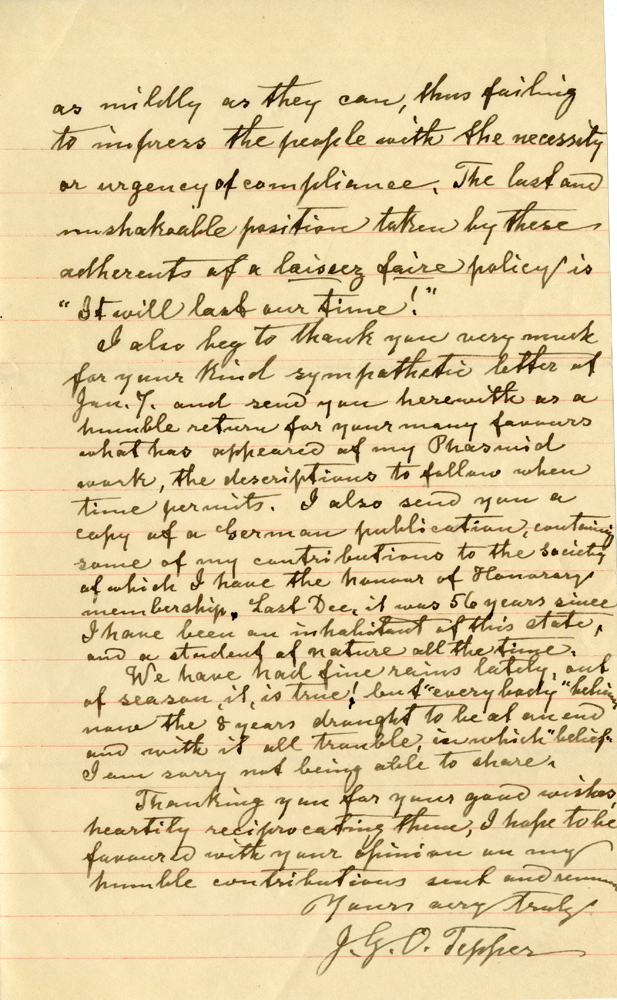 as mildly as they can, thus failing
to impress the people with the necessity
or urgency of compliance. The last and
unshakeable position taken by these
adherents of a laissez faire policy is
"It will last our time!"
I also beg to thank you very much
for your kind sympathetic letter of
Jan. 7. and send you herewith as a
humble return for your many favours
what has appeared of my Phasmid
work, the descriptions to follow when
time permits. I also send you a
copy of a German publication, containing
some of my contributions to the society
of which I have the honour of Honorary
membership. Last Dec, it was 56 years since
I have been an inhabitant of this state,
and a student of nature all the time.
We have had fine rains lately, out
of season, it is true! but "everybody" believes
now the 8 years drought to be at an end
and with it all trouble, in which "belief"
I am sorry not being able to share.
Thanking you for your good wishes,
heartily reciprocating them, I hope to be
favoured with your opinion on my
humble contributions sent and remain
Yours very truly
J. G. O. Tepper